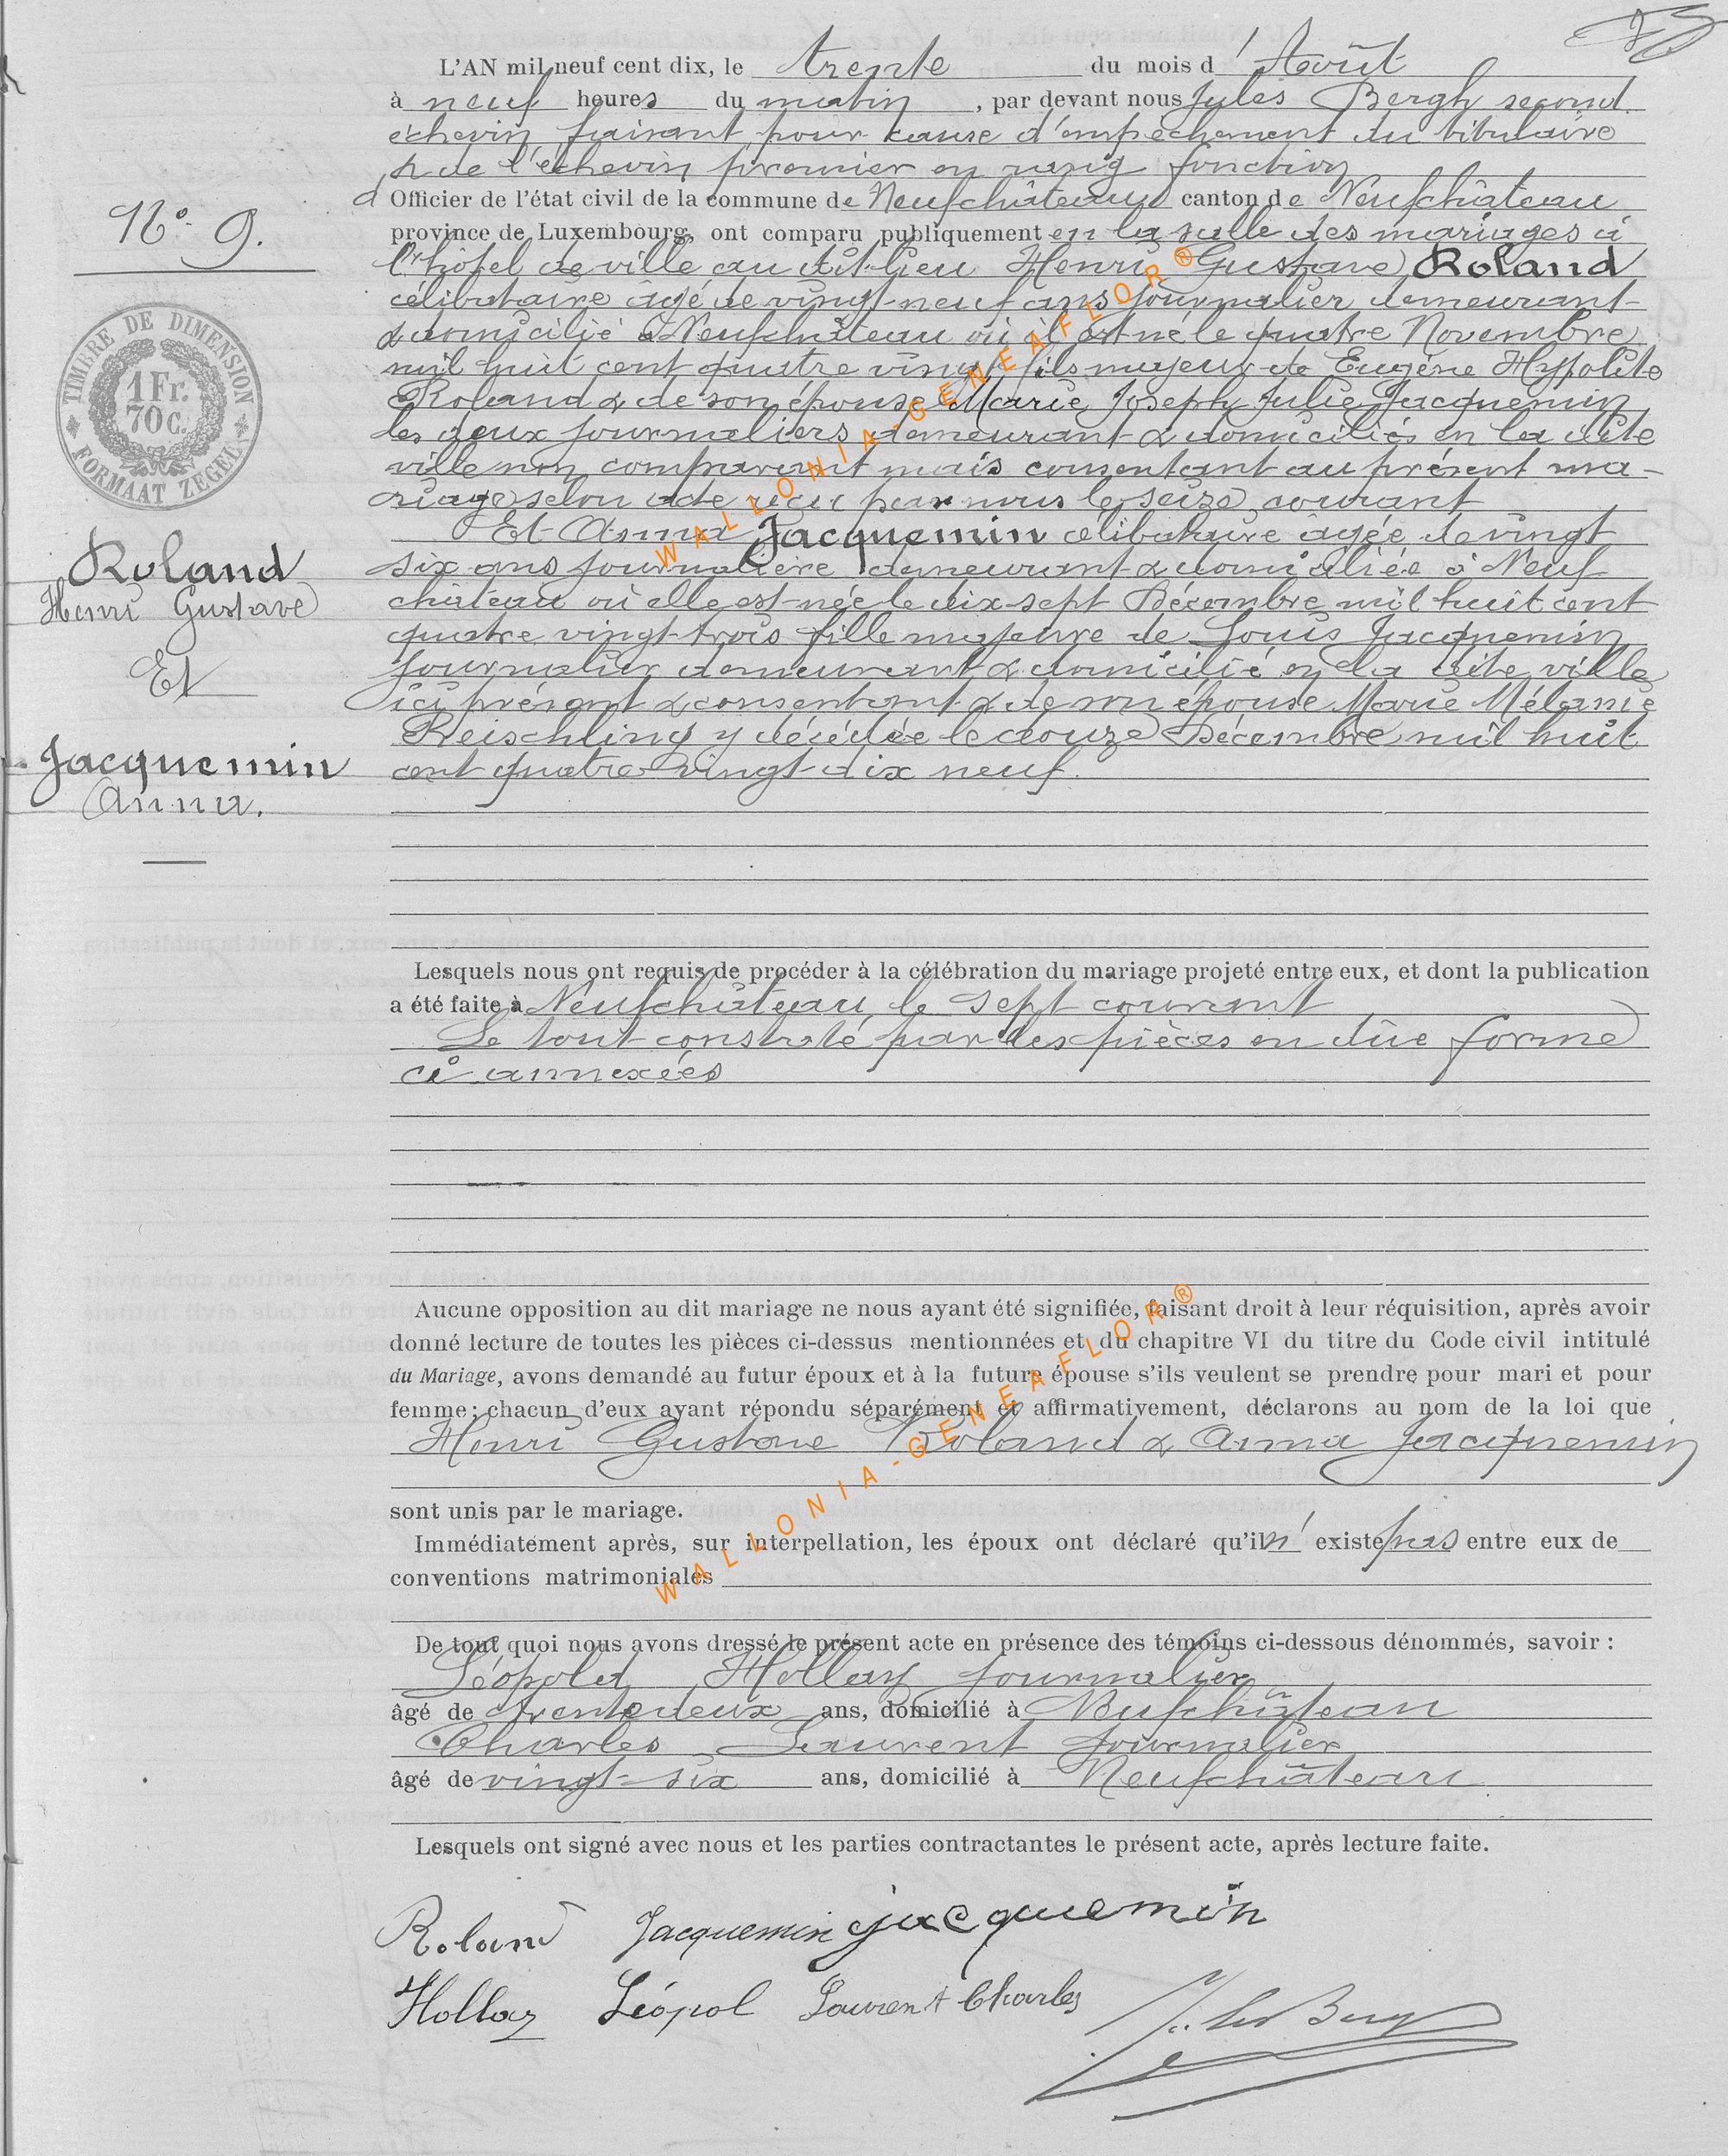 L'AN mil neuf cent dix, le trente du mois d'Août
à neuf heures du matin, par devant nous Jules Bergh second
échevin faisant pour cause d'empêchement du titulaire
& de l'échevin premier en rang fonction
d'Officier de l'état civil de la commune de Neufchâteau canton de Neufchâteau
province de Luxembourg, ont comparu publiquement en la salle des mariages à
l'hôtel de ville au dit lieu Henri Gustave Roland
célibataire âgé de vingt-neuf ans journalier demeurant
& domicilié à Neufchâteau où il est né le quatre Novembre
mil huit cent quatre vingt fils majeur de Eugène Hypolite
Roland & de son épouse Marie Joseph Julie Jacquemin
les deux journaliers demeurant & domiciliés en la dite
ville non comparant mais consentant au présent ma-
riage selon acte reçu par nous le seize courant
Et Anna Jacquemin célibataire âgée de vingt
six ans journalière demeurant & domiciliée à Neuf
château où elle est née le dix-sept Décembre mil huit cent
quatre vingt-trois fille majeure de Louis Jacquemin
journalier demeurant & domicilié en la dite ville
ici présent & consentant & de son épouse Marie Mélanie
Reischling y décédée le douze Décembre mil huit
cent quatre-vingt-dix neuf.
N° 9.
TIMBRE DE DIMENSION
1 Fr.
70 C.
FORMAAT ZEGEL
Roland
Henri Gustave
Et
Jacquemin
Anna.
Lesquels nous ont requis de procéder à la célébration du mariage projeté entre eux, et dont la publication
a été faite à Neufchâteau, le sept courant
Le tout constaté par des pièces en dûe forme
ci annexées
Aucune opposition au dit mariage ne nous ayant été signifiée, faisant droit à leur réquisition, après avoir
donné lecture de toutes les pièces ci-dessus mentionnées et du chapitre VI du titre du Code civil intitulé
du Mariage, avons demandé au futur époux et à la future épouse s'ils veulent se prendre pour mari et pour
femme; chacun d'eux ayant répondu séparément et affirmativement, déclarons au nom de la loi que
Henri Gustave Roland & Anna Jacquemin
sont unis par le mariage.
Immédiatement après, sur interpellation, les époux ont déclaré qu'il n'existe pas entre eux de
conventions matrimoniales
De tout quoi nous avons dressé le présent acte en présence des témoins ci-dessous dénommés, savoir :
Léopold Hollay journalier
âgé de trente deux ans, domicilié à Neufchâteau
Charles Laurent journalier
âgé de vingt-six ans, domicilié à Neufchâteau
Lesquels ont signé avec nous et les parties contractantes le présent acte, après lecture faite.
Roland Jacquemin jacquemin
Hollay Léopol Laurent Charles Jules Bergh
WALLONIA-GENEAFLOR®
WALLONIA-GENEAFLOR®